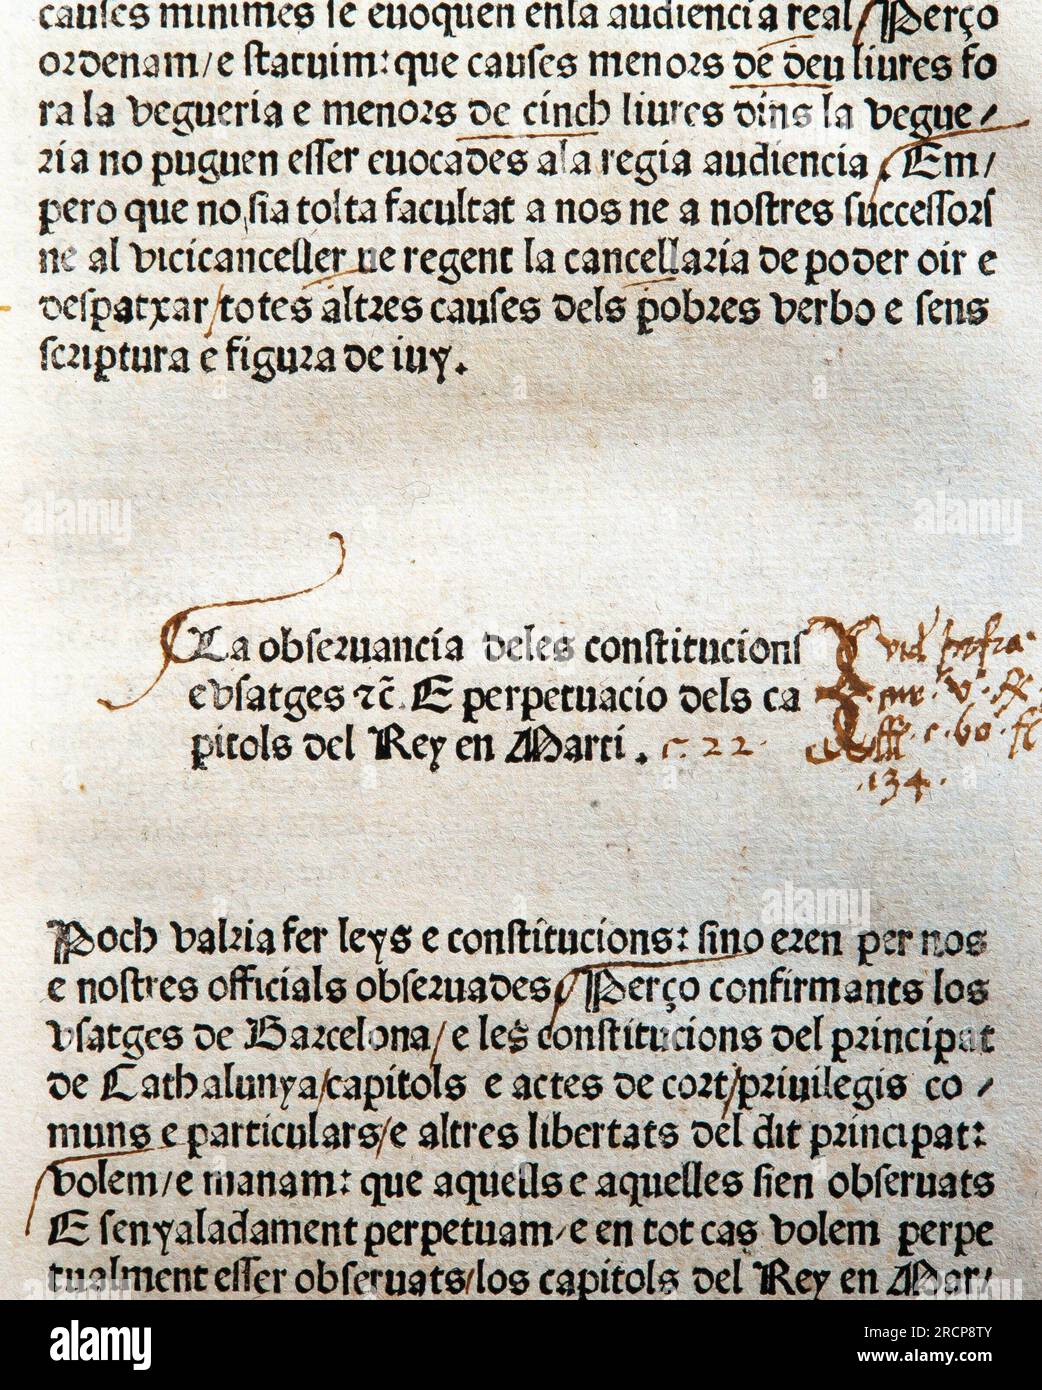 causes minimes se euoquen enla audiencia real Perço
ordenam/e statuim: que causes menors de deu liures fo
ra la vegueria e menors de cinch liures dins la vegue/
ria no puguen esser euocades ala regia audiencia. Em/
pero que no sia tolta facultat a nos ne a nostres successors
ne al vicicanceller ne regent la cancellaria de poder oir e
despatxar/totes altres causes dels pobres verbo e sens
scriptura e figura de iuy.
La obseruancia deles constitucions
e vsatges ⁊c̄. E perpetuacio dels ca
pitols del Rey en Marti. c. 22.
134.
Poch valria fer leys e constitucions: sino eren per nos
e nostres officials obseruades Perço confirmants los
vsatges de Barcelona/e les constitucions del principat
de Cathalunya/capitols e actes de cort/priuilegis co/
muns e particulars/e altres libertats del dit principat:
volem/e manam: que aquells e aquelles sien obseruats
E senyaladament perpetuam/e en tot cas volem perpe
tualment esser obseruats/los capitols del Rey en Mar/
alamy
alamy
Image ID: 2RCP8TY
www.alamy.com